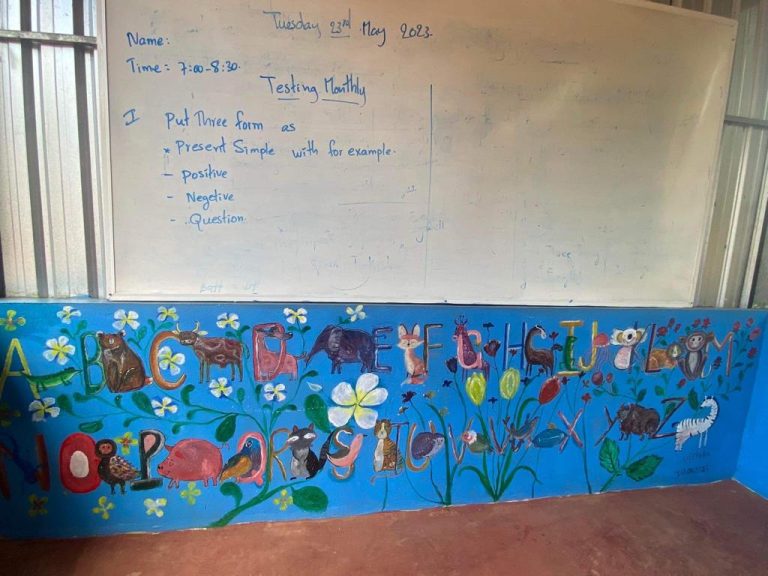 Tuesday 23rd May 2023.
Name:
Time: 7:00-8:30.
Testing Monthly
I Put Three form as
* Present Simple with for example.
- Positive
- Negetive
- Question
A B C D E F G H I J L M
N O P Q R S T U V W X Y Z